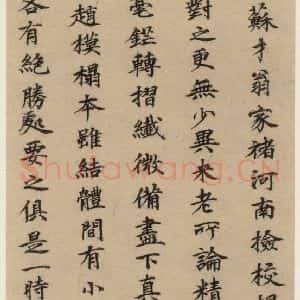 蘇才翁家褚河南檢校
對之更無少異米老所論精
毫鋩轉摺纖微備盡下真
趙模榻本雖結體間有小
各有絶勝處要之俱是一時
Shufawang.CN